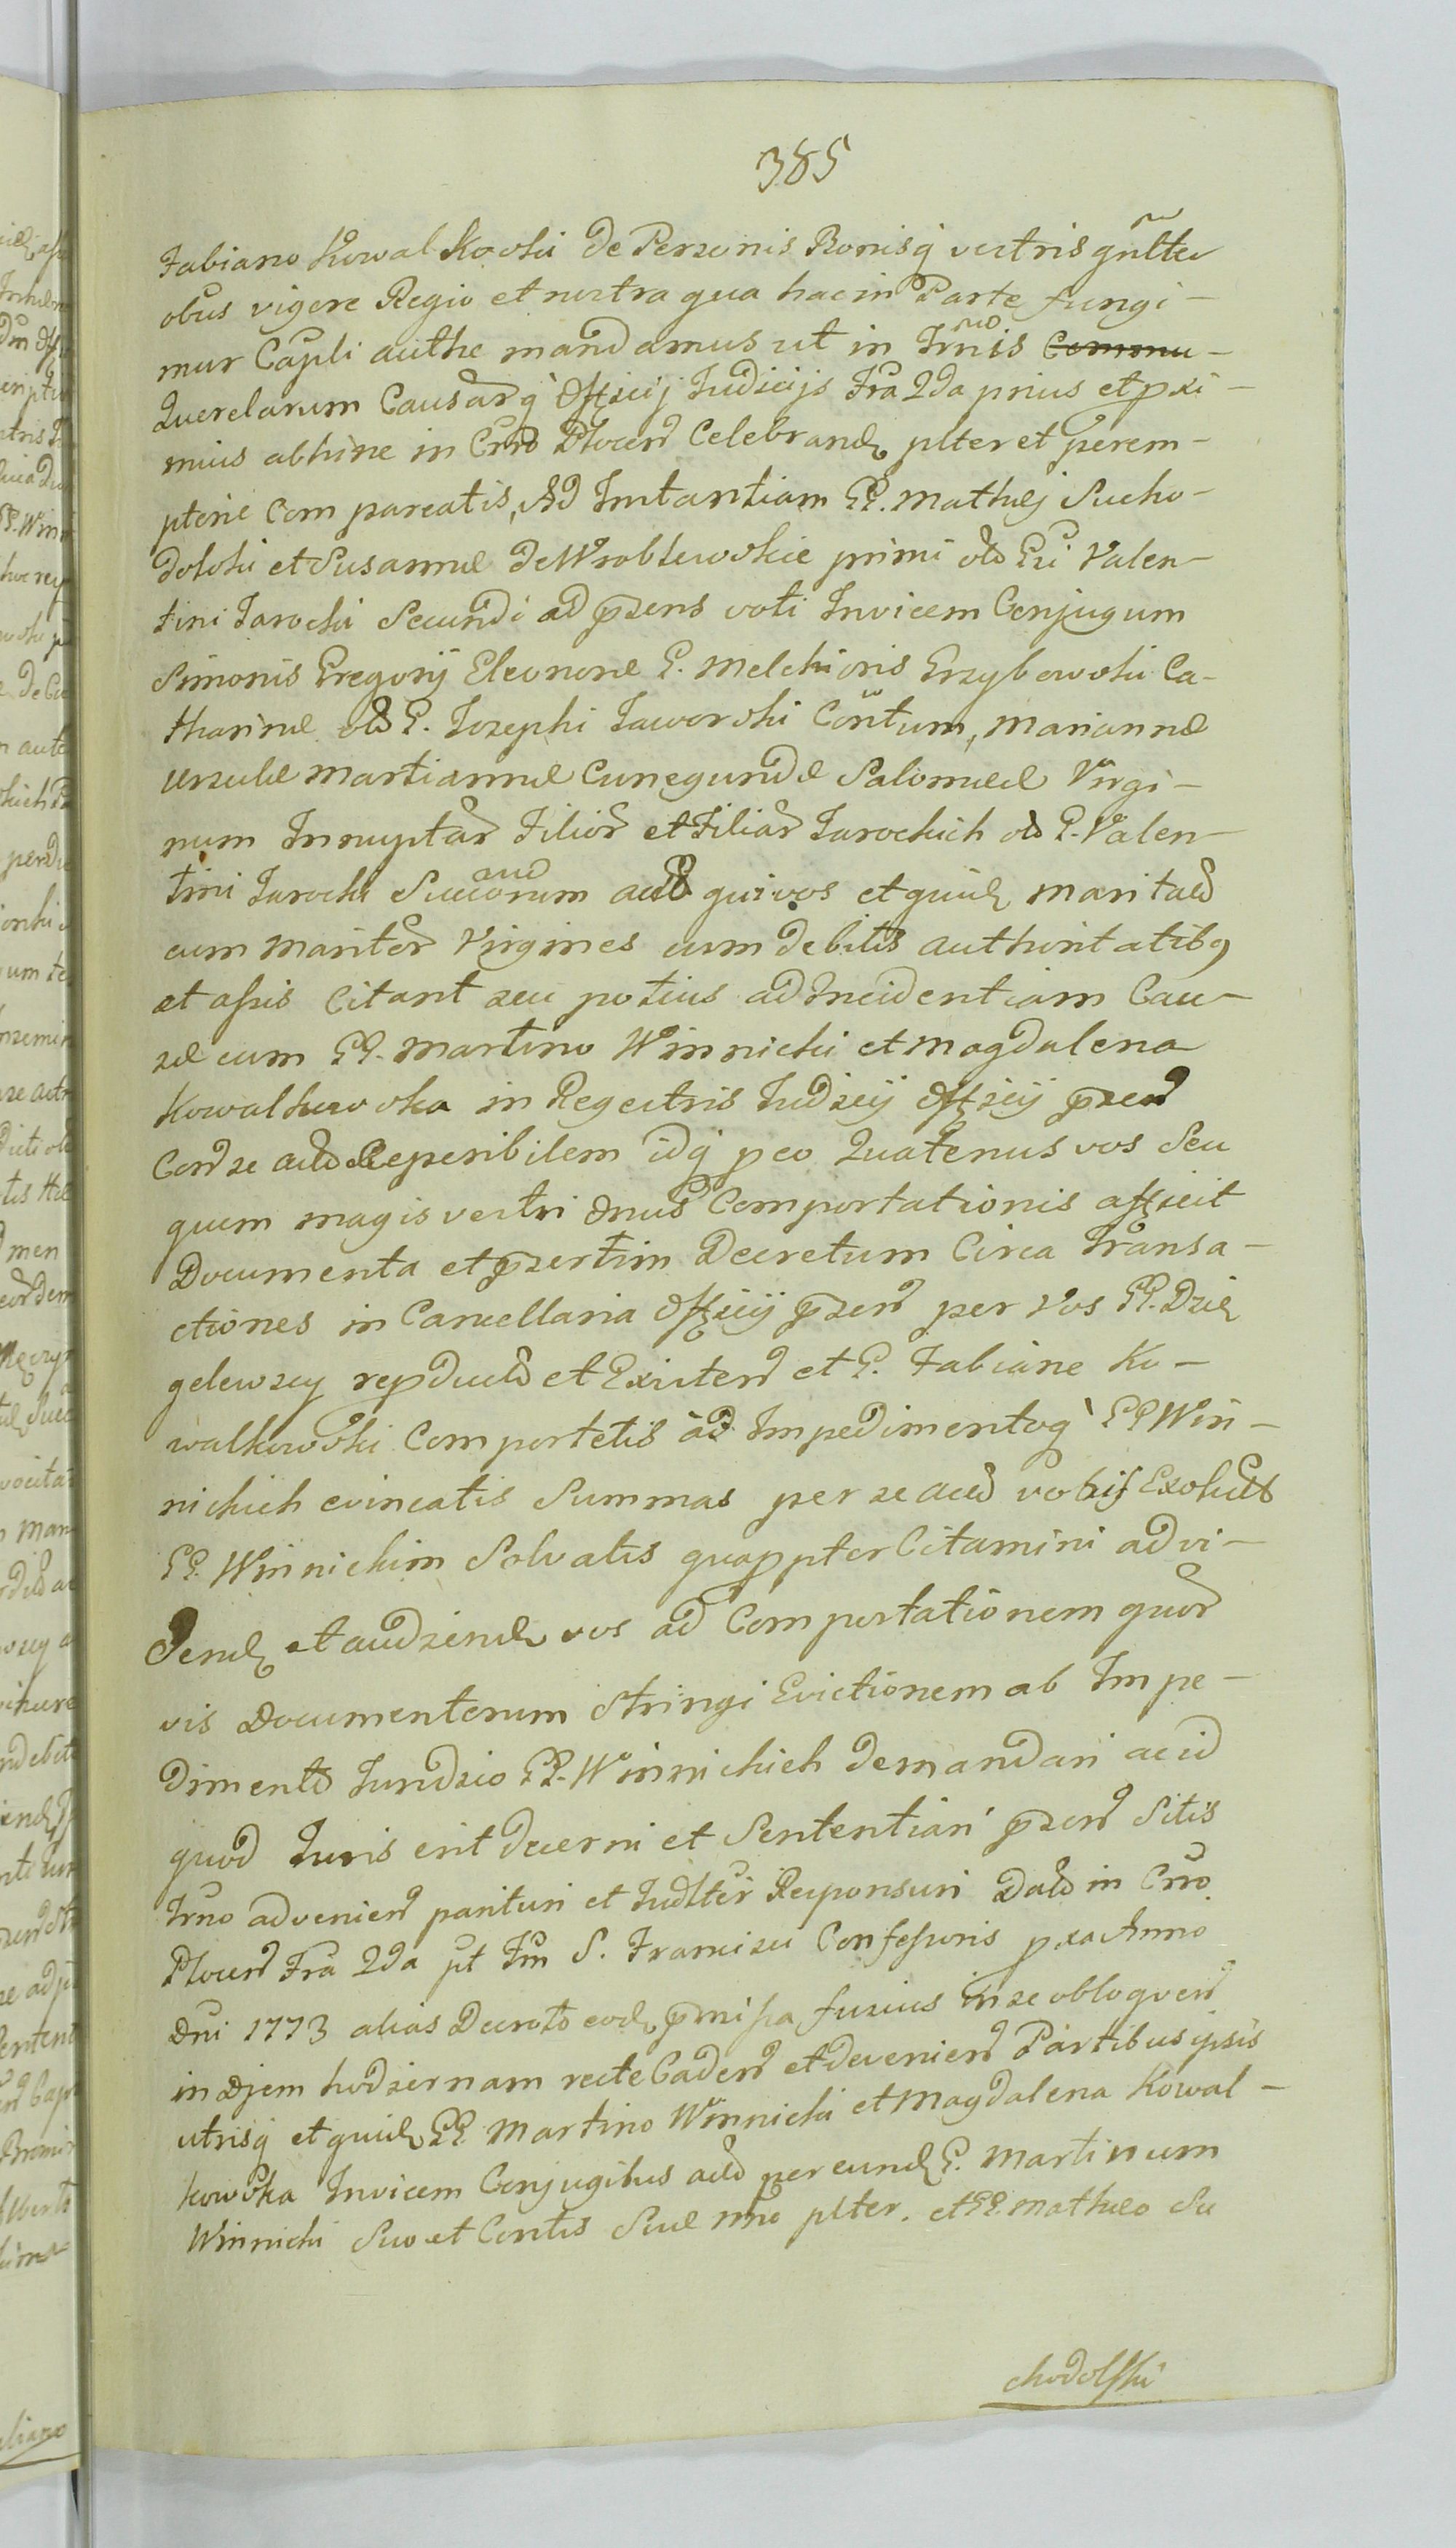 385
Fabiano Kowalkowski de Personis Bonisq vestris gnlter
obus vigore Regio et nostra qua hac in Parte fungi-
mur Capli authe mandamus ut in Trnis Commu-
Querelarum Causarq Officij Judicijs Fra 2da prius et pxi-
mius abhinc in Crro Plocen Celebrand plter et perem-
ptorie Compareatis, Ad Instantiam GG. Mathei Sucho-
dolski et Susannæ de Wroblewskie primi olo Gsi Valen-
tini Jarocki Secundi ad pzens voti Invicem Conjugum
Simonis Gregorij Eleonoræ G. Melchioris Grzybowski Ca-
tharinæ olo G. Josephi Jaworski Contum, Mariannæ
Ursulæ Martiannæ Cunegundæ Salomeæ Virgi-
num Innuptar Filior et Filiar Jarockich olo G. Valen-
tini Jarocki Succorum actò quivos et quid maritatò
cum maritor Virgines cum debitis authoritatibq
et assis Citant seu potius ad Incidentiam Cau-
sæ cum GG. Martino Winnicki et Magdalena
Kowalkowska in Regestris Judicij Officij pzen
Conse actò Reperibilem idq peo Quatenus vos seu
quem magis vestri onus Comportationis afficit
Documenta et pzertim Decretum Circa Transa-
ctiones in Cancellaria Officij pzen per Vos GG. Dzię
gelewscy repductò et Existen et G. Fabiane Ko-
walkowski Comportetis ad Impedimentoq GG Win-
nickich evincatis Summas per se actò vobis Exolutò
GG. Winnickim Solvatis quappter Citamini ad vi-
dend et audiend vos ad Comportationem quor
vis Documentorum stringi Evictionem ab Impe-
dimentò Juridico GG. Winnickich demandari acid
quod Juris erit decerni et Sententiari pzen Sitis
Trno advenien parituri et Judlter Responsuri Datò in Crro
Plocen Fra 2da pt Fm S. Francisci Confessoris pxa Anno
Dni 1773 alias Decretò eod pmissa fusius in se obloquen
in Diem hodiernam recte Caden et devenien Partibus ipsis
utrisq et quid GG. Martino Winnicki et Magdalena Kowal-
kowska Invicem Conjugibus actò per eund G. Martinum
Winnicki Suo et Contis Suæ nne plter. et GG. Matheo Su
chodolski